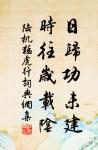 日歸功未建
時往歲載陰
陸机猛虎行詞典網集